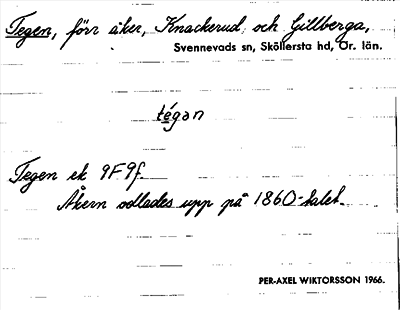 Tegen, förr åker, Knackerud och Gillberga,
Svennevads sn, Sköllersta hd, Ör. län.
tégan
Tegen ek 9F9f.
Åkern odlades upp på 1860-talet.
PER-AXEL WIKTORSSON 1966.